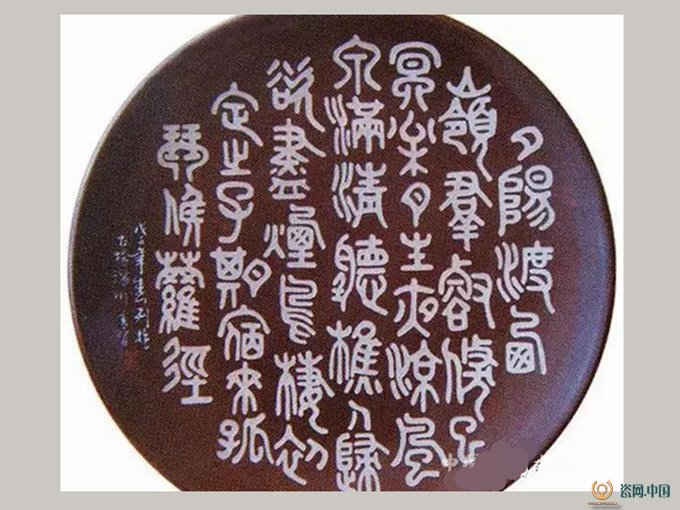 夕陽渡西
嶺群壑倏已
冥松月生夜涼風
泉滿清聽樵人歸
欲盡煙鳥棲初
定之子期宿來孤
琴候蘿徑
瓷网.中国